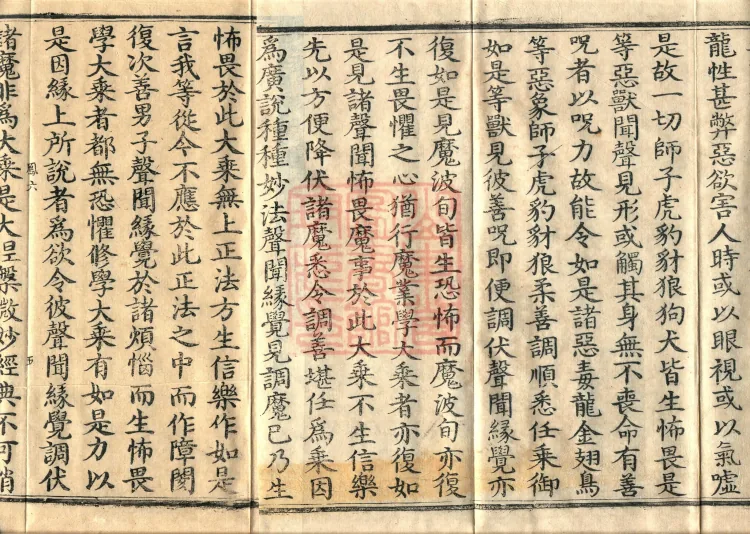 龍性甚弊惡欲害人時或以眼視或以氣噓
是故一切師子虎豹豺狼狗犬皆生怖畏是
等惡獸聞聲見形或觸其身無不喪命有善
咒者以咒力故能令如是諸惡毒龍金翅鳥
等惡象師子虎豹豺狼柔善調順悉任乘御
如是等獸見彼善咒即便調伏聲聞緣覺亦
復如是見魔波旬皆生恐怖而魔波旬亦復
不生畏懼之心猶行魔業學大乘者亦復如
是見諸聲聞怖畏魔事於此大乘不生信樂
先以方便降伏諸魔悉令調善堪任為乘因
為廣說種種妙法聲聞緣覺見調魔已乃生
怖畏於此大乘無上正法方生信樂作如是
言我等從今不應於此正法之中而作障閡
復次善男子聲聞緣覺於諸煩惱而生怖畏
學大乘者都無恐懼修學大乘有如是力以
是因緣上所說者為欲令彼聲聞緣覺調伏
諸魔非為大乘是大涅槃微妙經典不可消